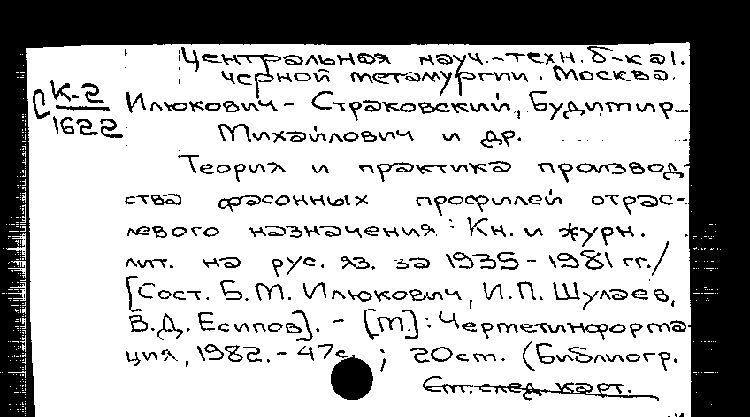 Центральная науч.-техн. б-ка
черной металлургии. Москва.
К-2
1622
Илюкович-Страковский, Будимир
Михайлович и др.
Теория и практика производ-
ства фасонных профилей отрас-
левого назначения: Кн. и журн.
лит. на рус. яз. за 1935-1981 гг./
[Сост. Б.М. Илюкович, И.П. Шулаев,
В.Д. Есипов]. - [М]: Черметинформа-
ция, 1982. - 47с. ; 20см. (Библиогр.
См. след. карт.